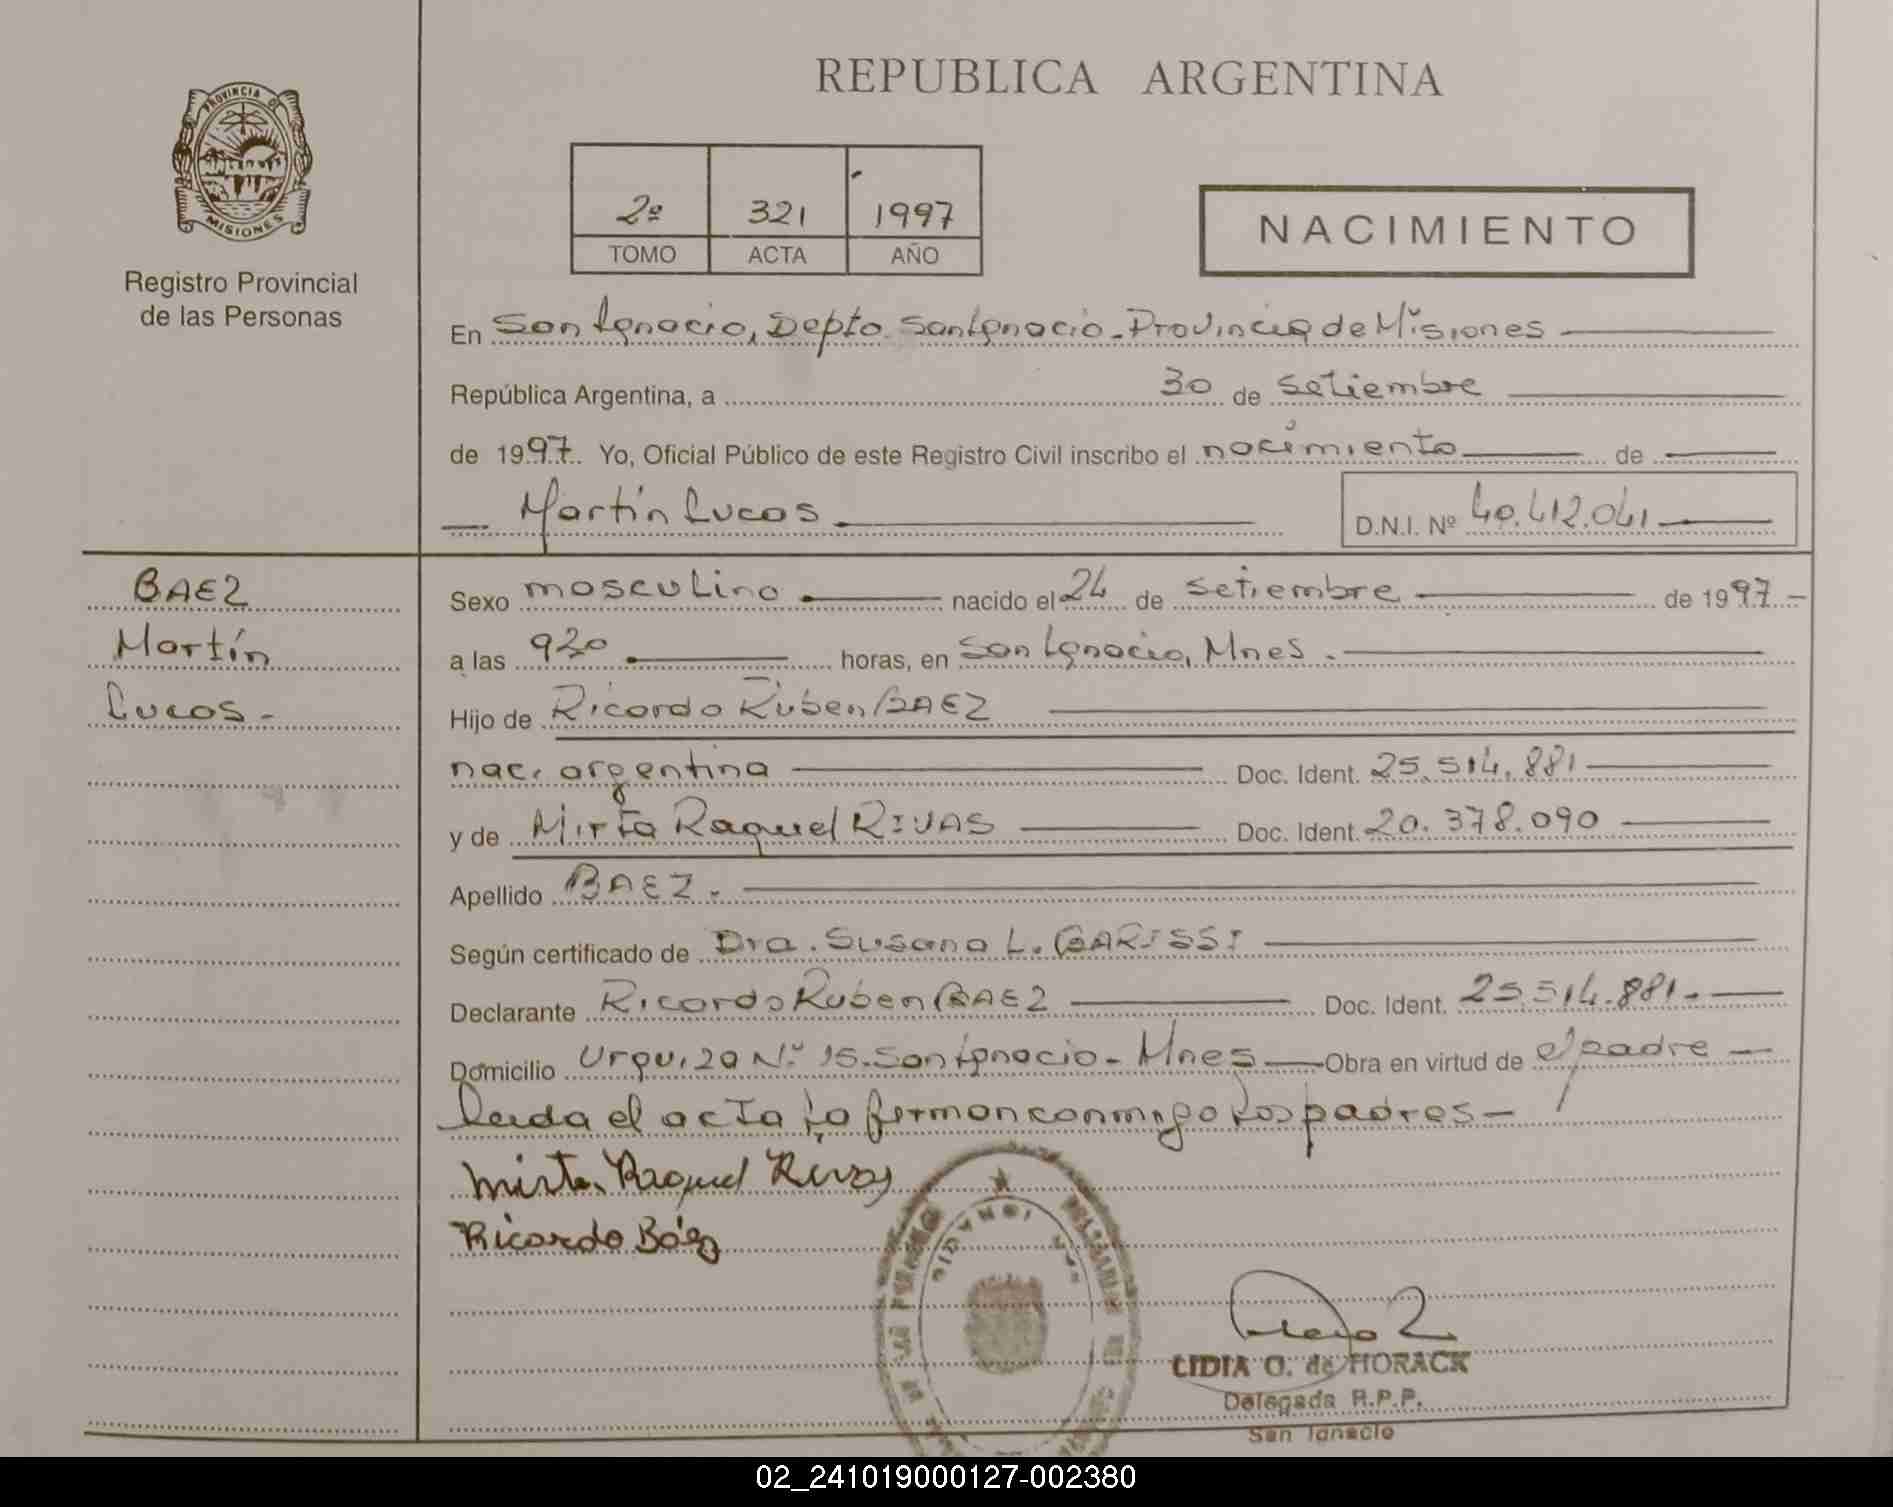 REPUBLICA ARGENTINA
PROVINCIA D
MISIONES
Registro Provincial
de las Personas
2º 321 1997
TOMO ACTA AÑO
NACIMIENTO
En San Ignacio, Depto San Ignacio - Provincia de Misiones
República Argentina, a 30 de Setiembre
de 1997. Yo, Oficial Público de este Registro Civil inscribo el nacimiento de
Martín Lucas D.N.I. Nº 40.412.041
BAEZ
Martín
Lucas -
Sexo masculino nacido el 24 de setiembre de 1997 -
a las 930 horas, en San Ignacio, Mnes.
Hijo de Ricardo Rúben BAEZ
nac. argentina Doc. Ident. 25.514.881
y de Mirta Raquel RIVAS Doc. Ident. 20.378.090
Apellido BAEZ.
Según certificado de Dra. Susana L. GARISSI
Declarante Ricardo Ruben BAEZ Doc. Ident. 25.514.881.-
Domicilio Urquiza Nº 15. San Ignacio - Mnes - Obra en virtud de el padre -
Leida el acta la firman conmigo los padres -
Mirta Raquel Rivas
Ricardo Báez
LIDIA O. de HORACK
Delegada R.P.P.
San Ignacio
02_241019000127-002380